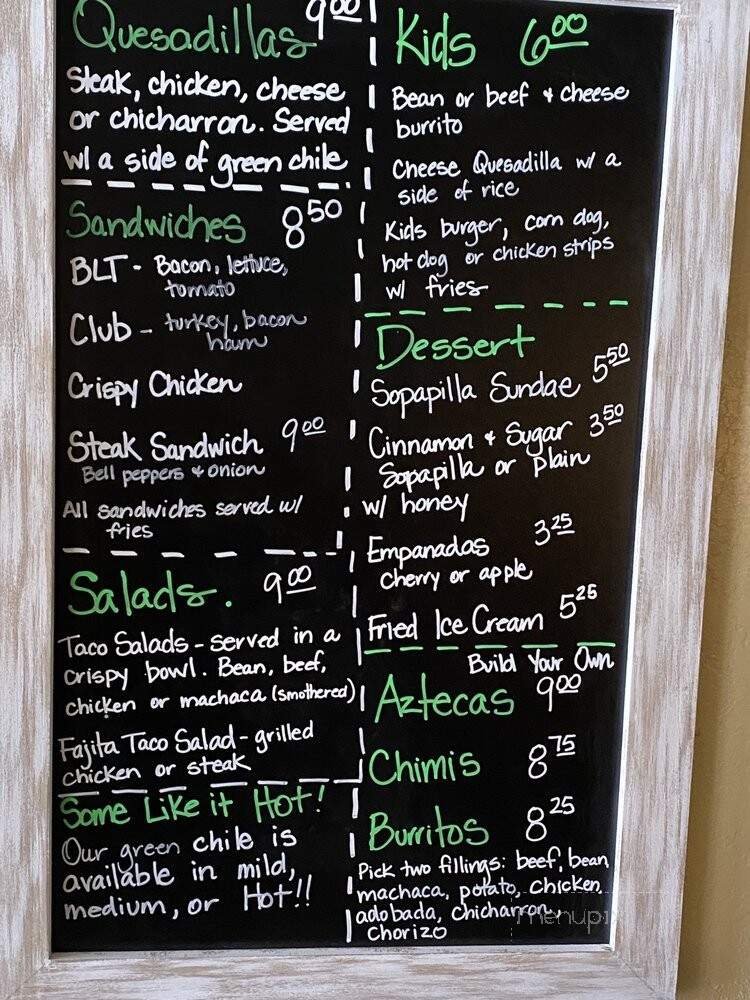 Quesadillas 9.00
Steak, chicken, cheese
or chicharron. Served
w/ a side of green chile
Sandwiches 8.50
BLT - Bacon, lettuce,
tomato
Club - turkey, bacon
ham
Crispy Chicken
Steak Sandwich 9.00
Bell peppers & onion
All sandwiches served w/
fries
Salads. 9.00
Taco Salads - served in a
crispy bowl. Bean, beef,
chicken or machaca (smothered)
Fajita Taco Salad - grilled
chicken or steak
Some Like it Hot!
Our green chile is
available in mild,
medium, or Hot!!
Kids 6.00
Bean or beef & cheese
burrito
Cheese Quesadilla w/ a
side of rice
Kids burger, corn dog,
hot dog or chicken strips
w/ fries
Dessert
Sopapilla Sundae 5.50
Cinnamon & Sugar 3.50
Sopapilla or Plain
w/ honey
Empanadas 3.25
cherry or apple
Fried Ice Cream 5.25
Build Your Own
Aztecas 9.00
Chimis 8.75
Burritos 8.25
Pick two fillings: beef, bean
machaca, potato, chicken,
adobada, chicharron,
Chorizo